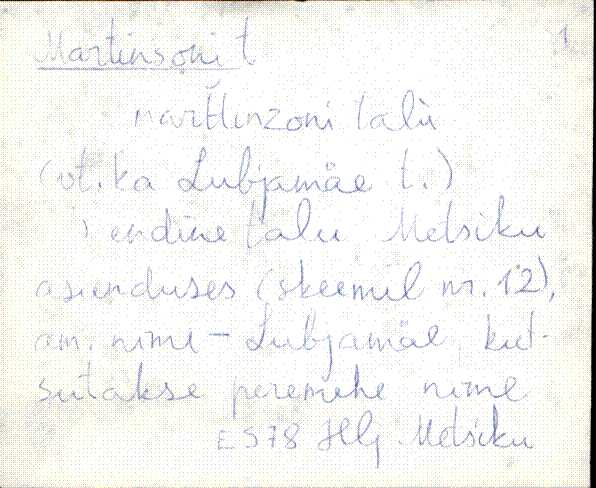 1
Martinsoni t
marťtinzoni talù
(vt. ka Lubjamäe t.)
endine talu Metsiku
asunduses (skeemil nr. 12),
am. nimi - Lubjamäe, kut-
sutakse peremehe nime
ES78 HG Metsiku